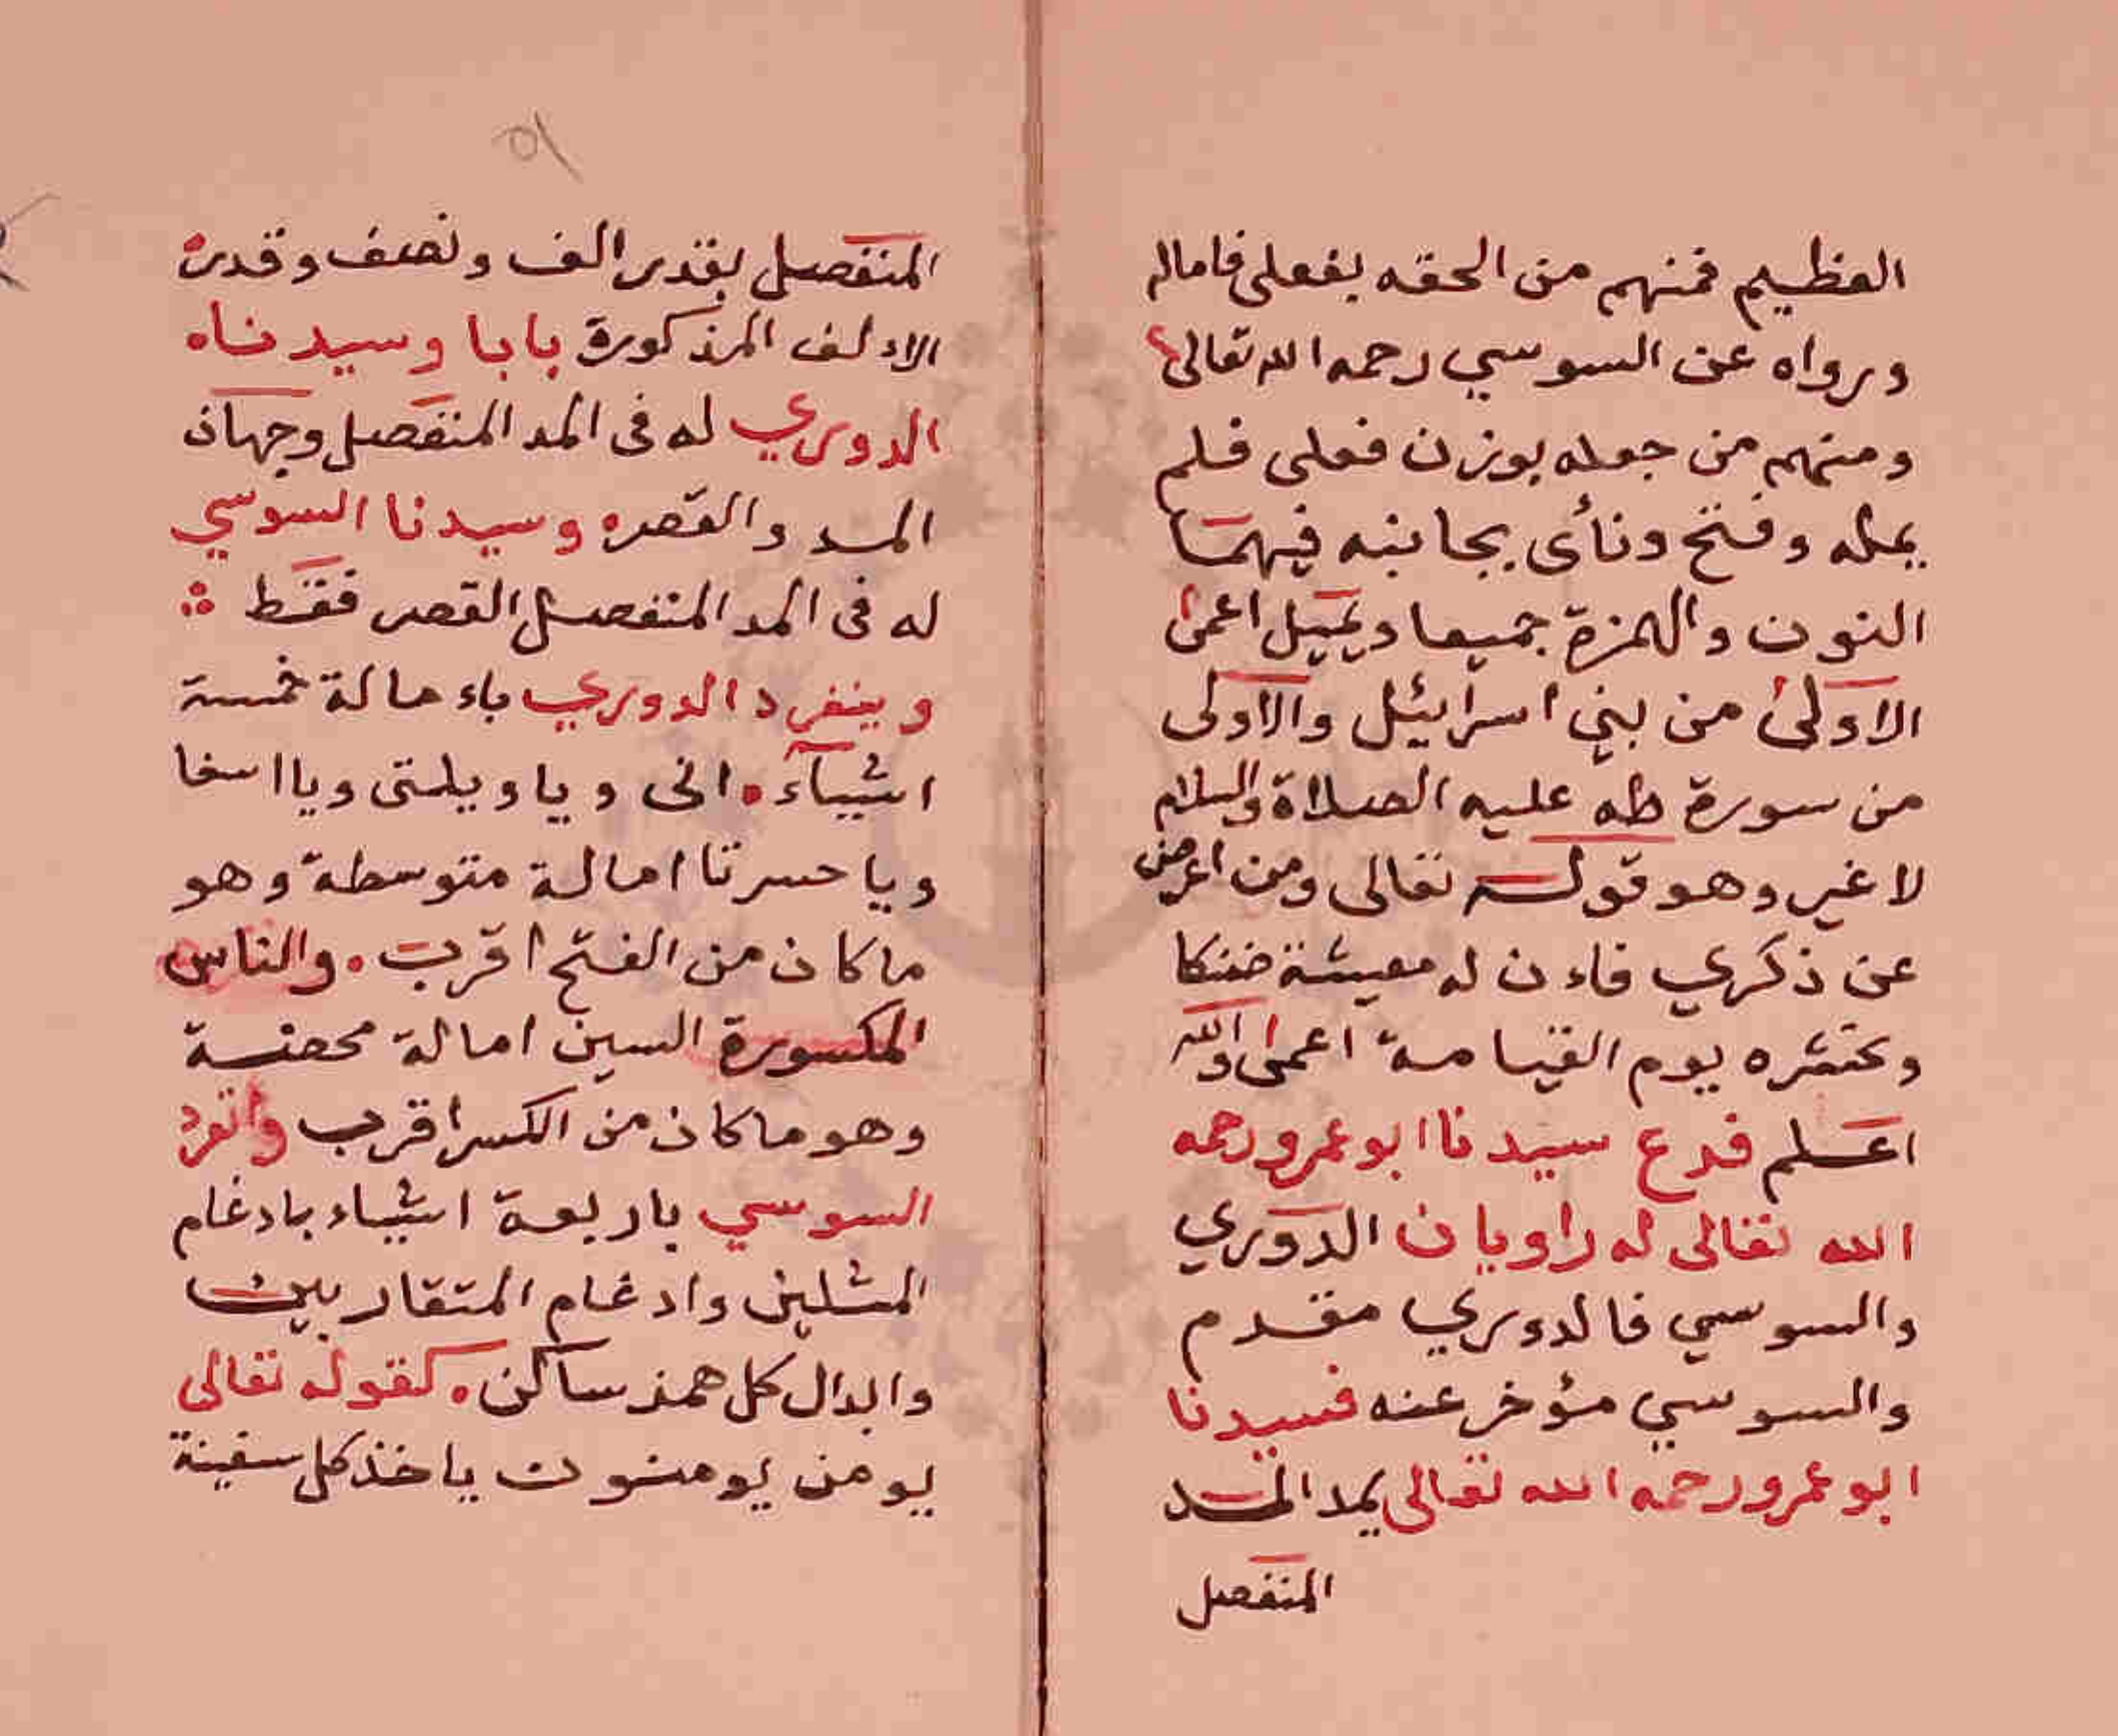 العظيم فمنهم من الحقه بفعلى فاماله
ورواه عن السوسي رحمه الله تعالى
ومنهم من جعله بوزن فعلى فلم
يمله وفتح ونأى بجانبه فيهما
النون والهمزة جميعا ويميل اعمى
الاولى من بني اسرائيل والاولى
من سورة طه عليه الصلاة والسلام
لا غير وهو قوله تعالى ومن اعرض
عن ذكري فاءن له معيشة ضنكا
ونحشره يوم القيامة اعمى والله
اعلم فرع سيدنا ابو عمرو رحمه
الله تعالى له راويان الدوري
والسوسي فالدوري مقدم
والسوسي مؤخر عنه فسيدنا
ابو عمرو رحمه الله تعالى يمد المد
المنفصل
٥١
المنفصل بقدر الف ونصف وقدر
الاءلف المذكورة بابا وسيدناه
الدوري له فى المد المنفصل وجهان
المد والقصر وسيدنا السوسي
له فى المد المنفصل القصر فقط
وينفرد الدوري باءمالة خمسة
اشياء انى ويا ويلتى ويا اسفا
ويا حسرتا امالة متوسطة وهو
ما كان من الفتح اقرب والناس
المكسورة السين امالة محضة
وهو ما كان من الكسر اقرب وانفرد
السوسي باربعة اشياء بادغام
المثلين وادغام المتقاربين
وابدال كل همز ساكن كقوله تعالى
يومن يومنون ياخذ كل سفينة